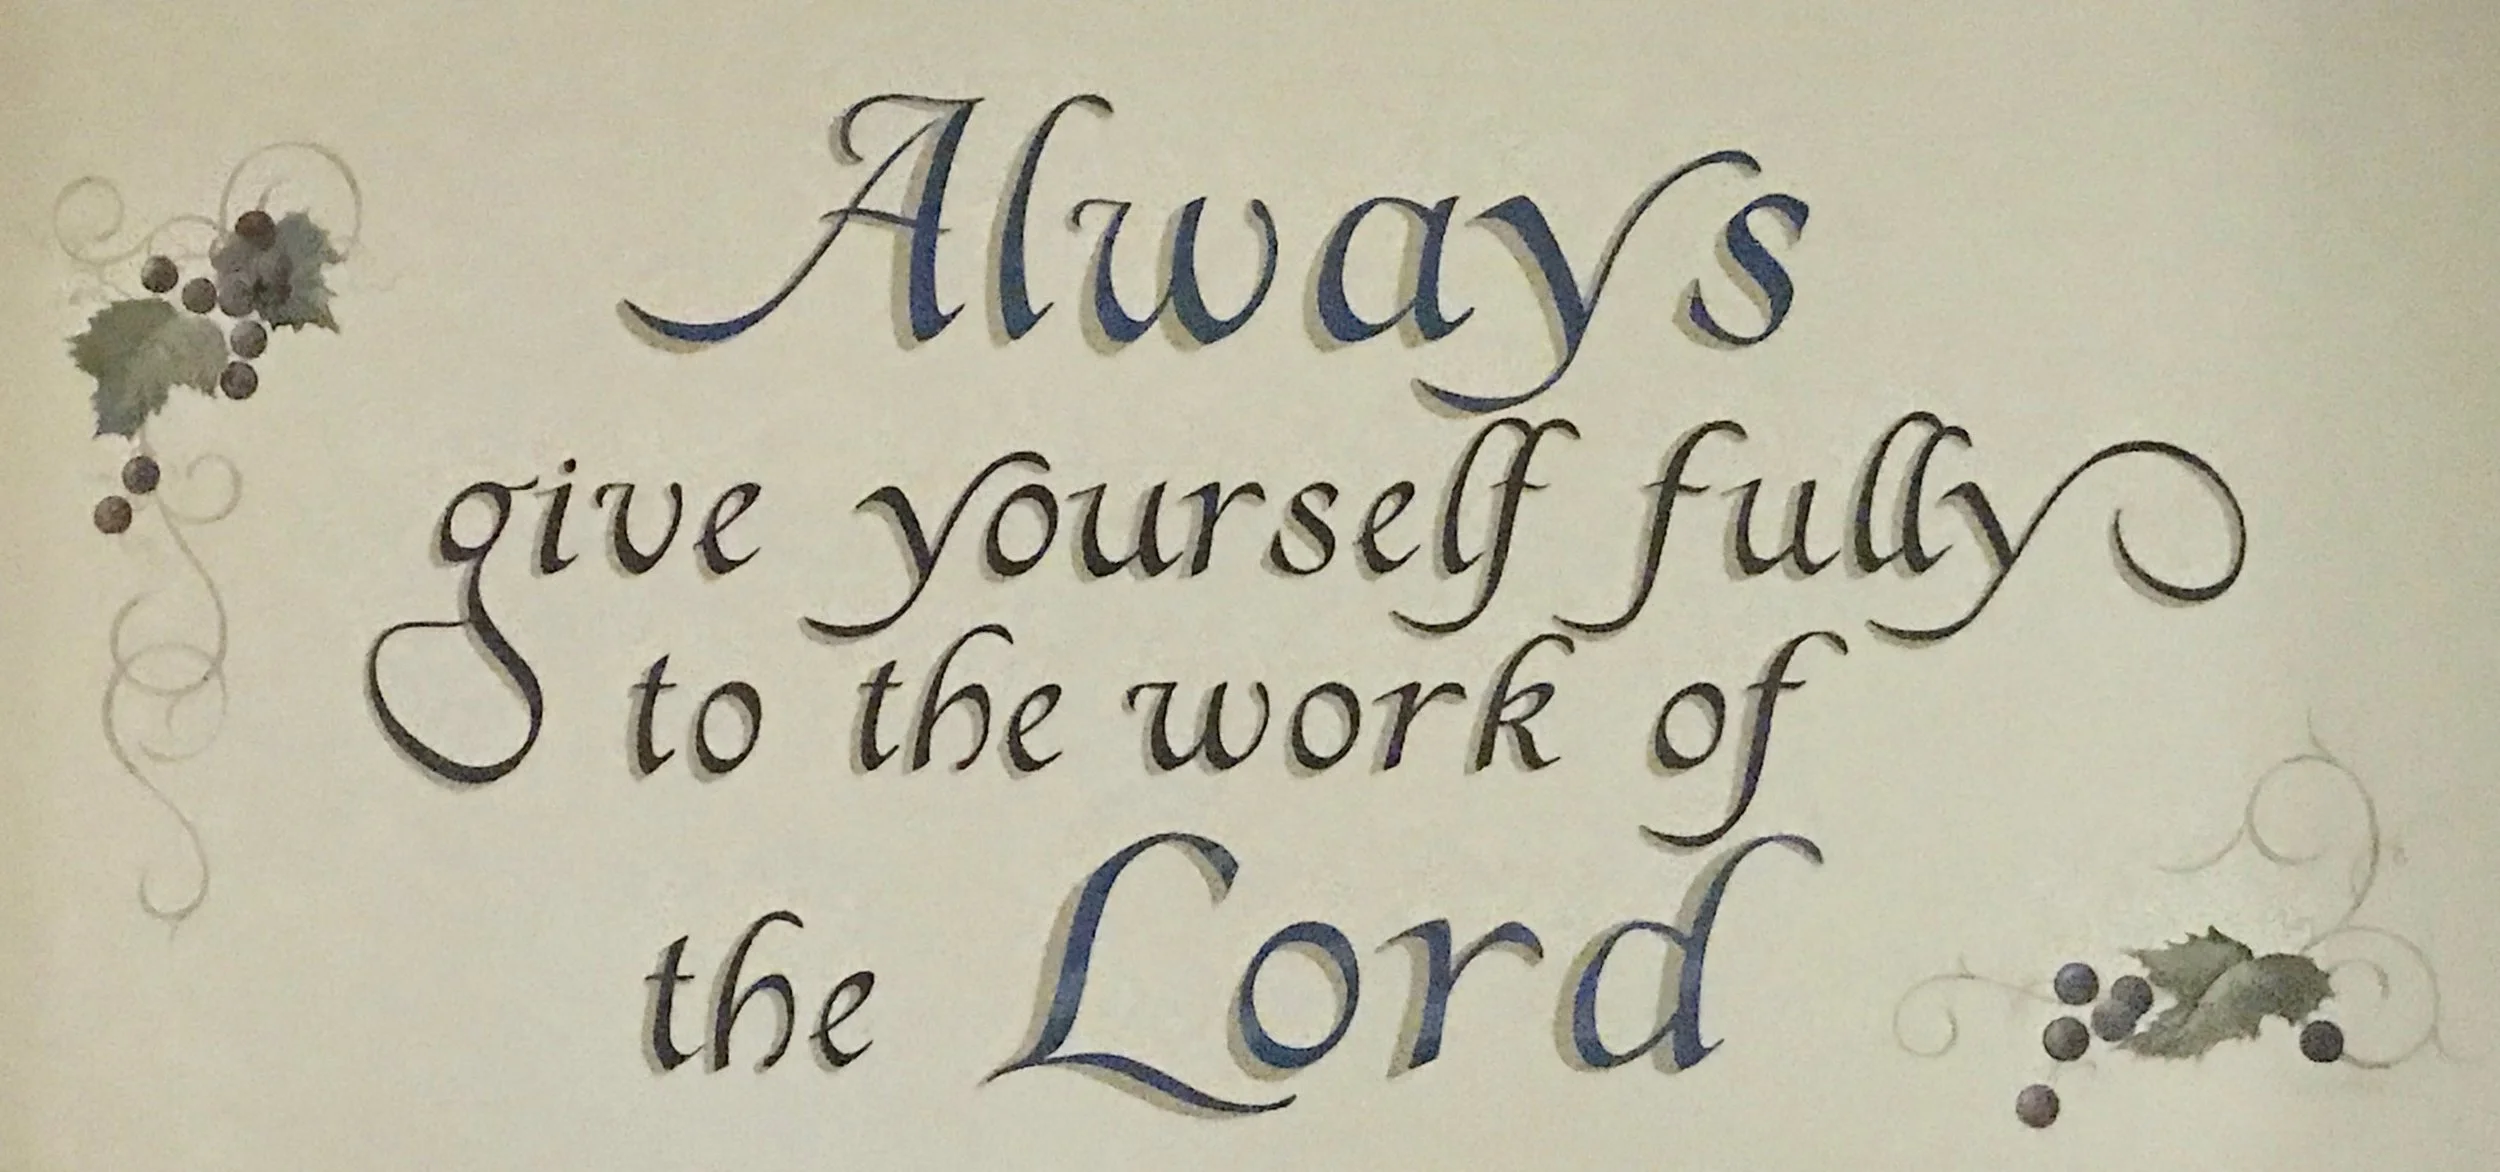 Always
give yourself fully
to the work of
the Lord